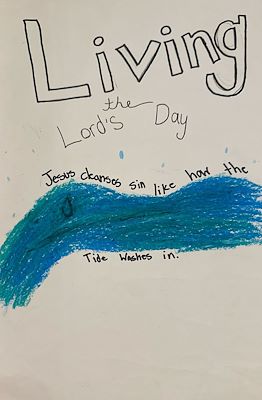 Living
the
Lord's Day
Jesus cleanses sin like how the
Tide washes in.